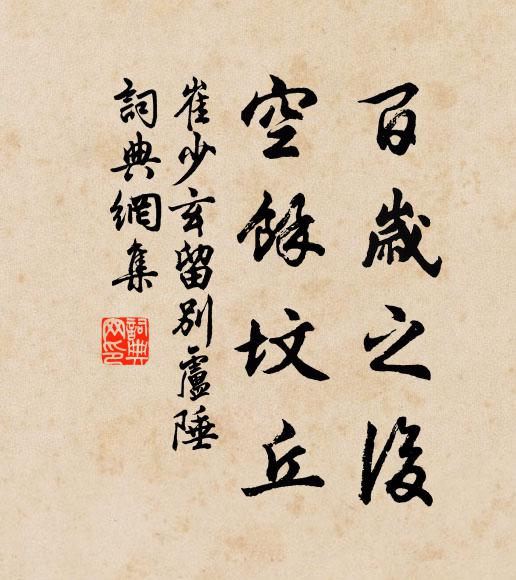 百歲之後
空餘墳丘
崔少玄留別盧陲
詞典網集
詞典網印